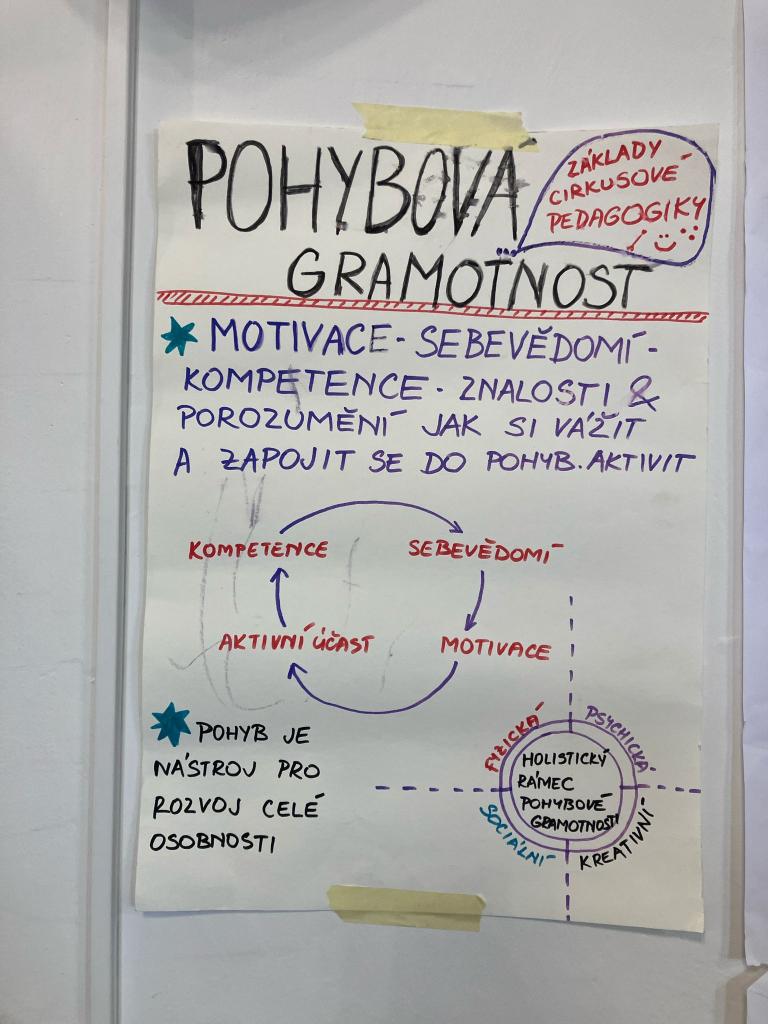 POHYBOVÁ
GRAMOTNOST
ZÁKLADY
CIRKUSOVÉ
PEDAGOGIKY
MOTIVACE - SEBEVĚDOMÍ -
KOMPETENCE - ZNALOSTI &
POROZUMĚNÍ JAK SI VÁŽIT
A ZAPOJIT SE DO POHYB. AKTIVIT
KOMPETENCE
SEBEVĚDOMÍ
AKTIVNÍ ÚČAST
MOTIVACE
POHYB JE
NÁSTROJ PRO
ROZVOJ CELÉ
OSOBNOSTI
FYZICKÁ
PSYCHICKÁ
HOLISTICKÝ
RÁMEC
POHYBOVÉ
GRAMOTNOSTI
SOCIÁLNÍ
KREATIVNÍ